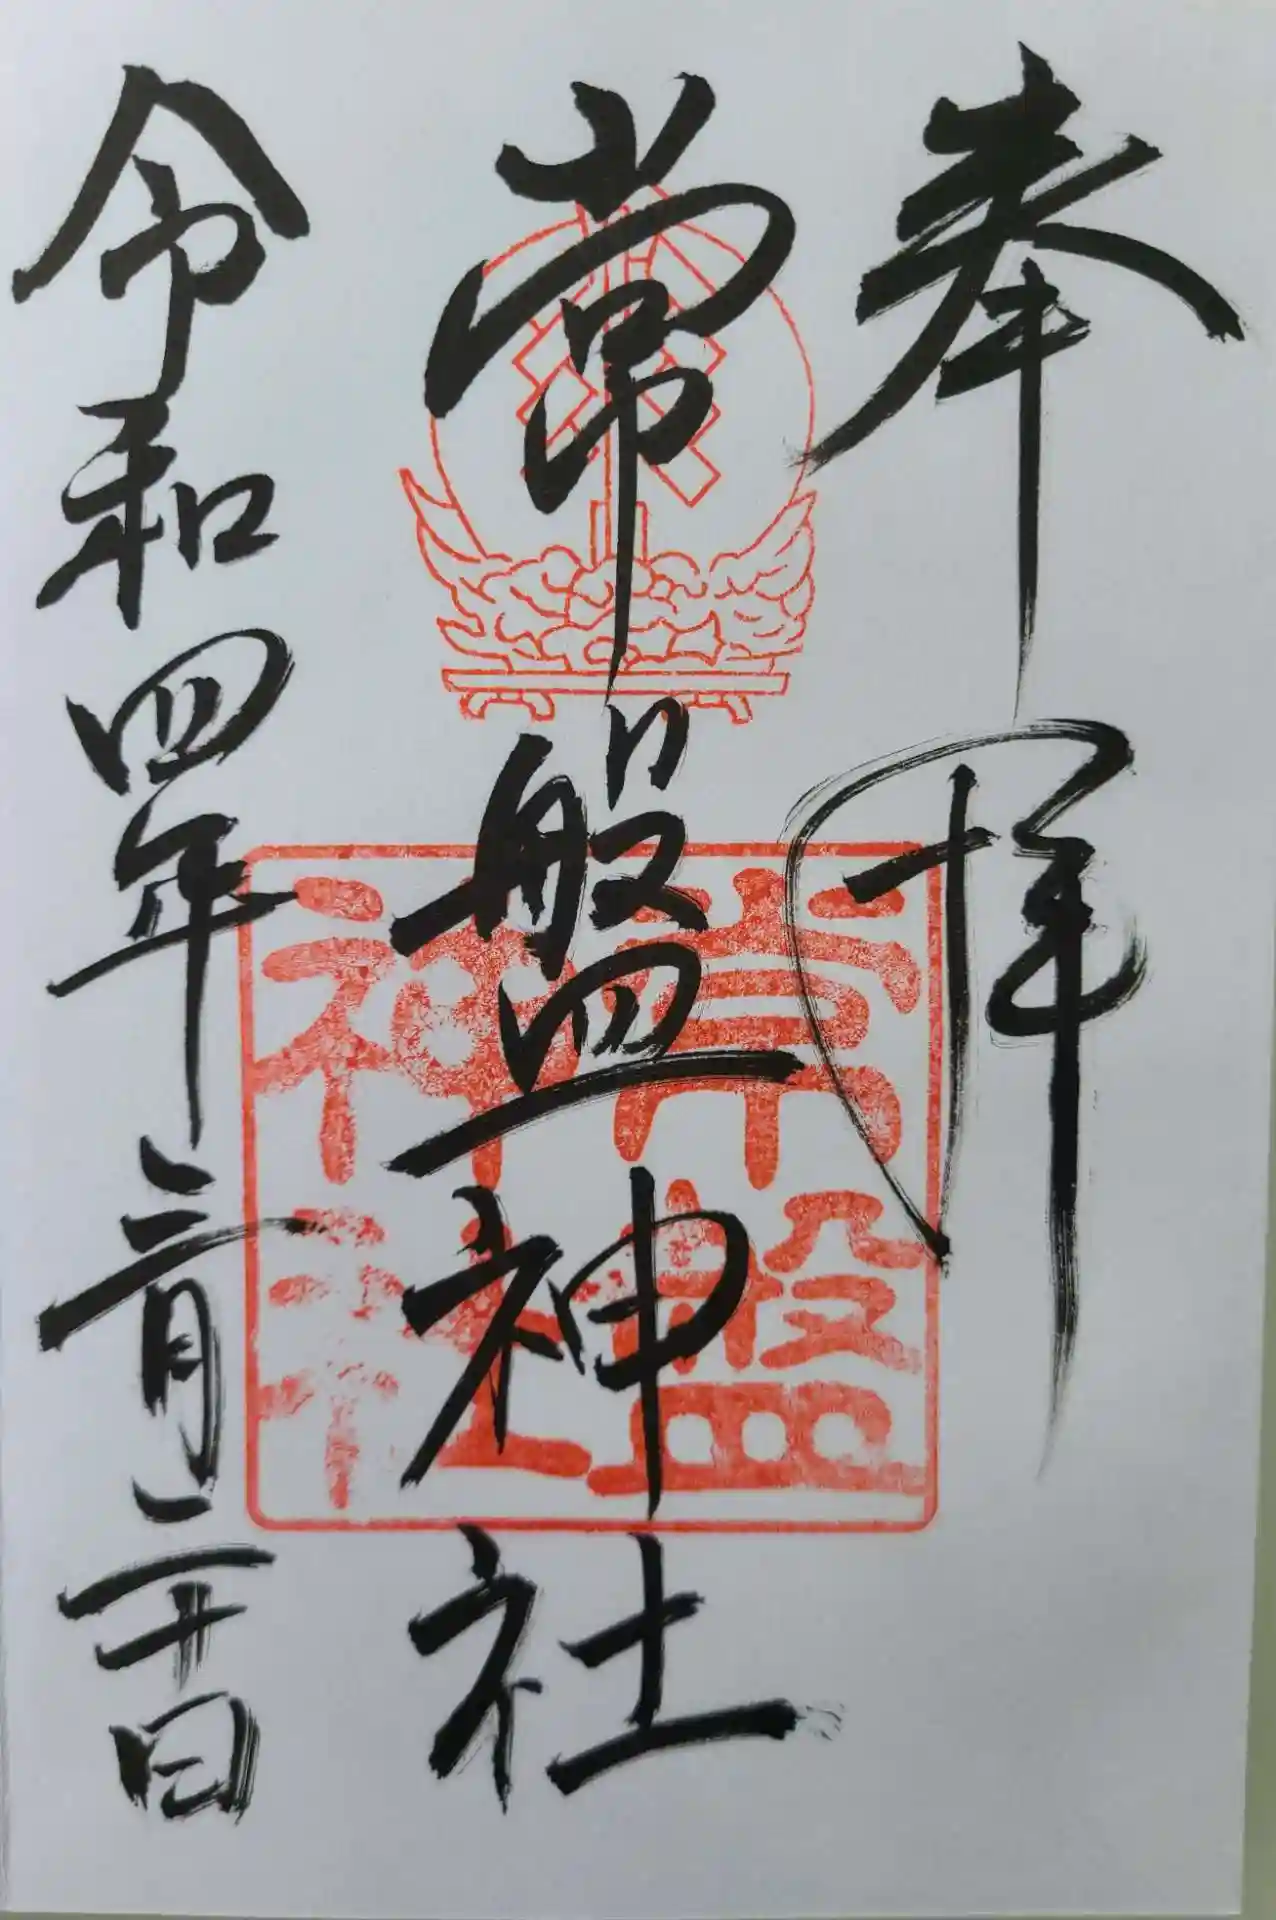 奉拝
常盤神社
令和四年三月二十日
常盤
神社